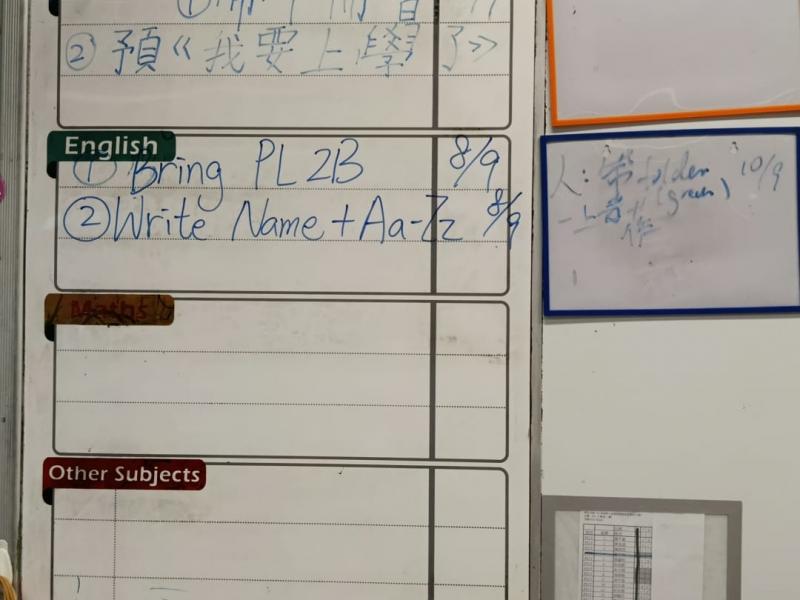 ② 預《我要上學了》
English
① Bring PL2B 8/9
② Write Name + Aa-Zz 8/9
Maths
Other Subjects
人: 帶 folder 10/9
(green)